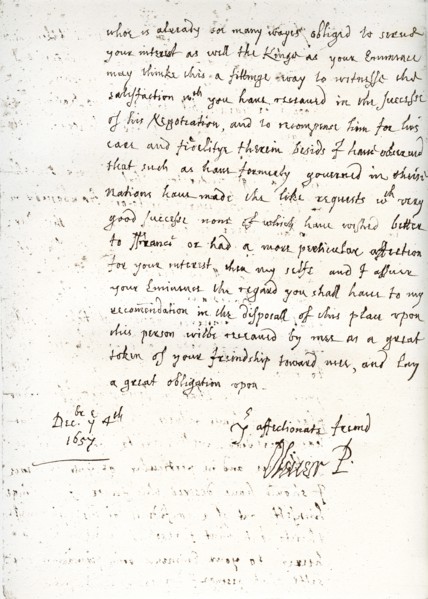 who is already soe many wayes obliged to serve
your interest as well the Kings as your Eminence
may thinke this a fitting way to witnesse the
satisfaction wth you have receaved in the successe
of his Negotiation, and to recompense him for his
care and fidelitye therein besids I have observed
that such as have formerly governed in theise
nations have made the like requests wth very
good successe none of which have wished better
to ffrance or had a more perticular affection
for your interest then my selfe and I assure
your Eminence the regard you shall have to my
recomendation in the disposall of this place upon
this person wilbe receaved by mee as a great
token of your friendship toward mee, and lay
a great obligation upon
Decbr ye 4th
1657
Yr affectionate freind
Oliver P.